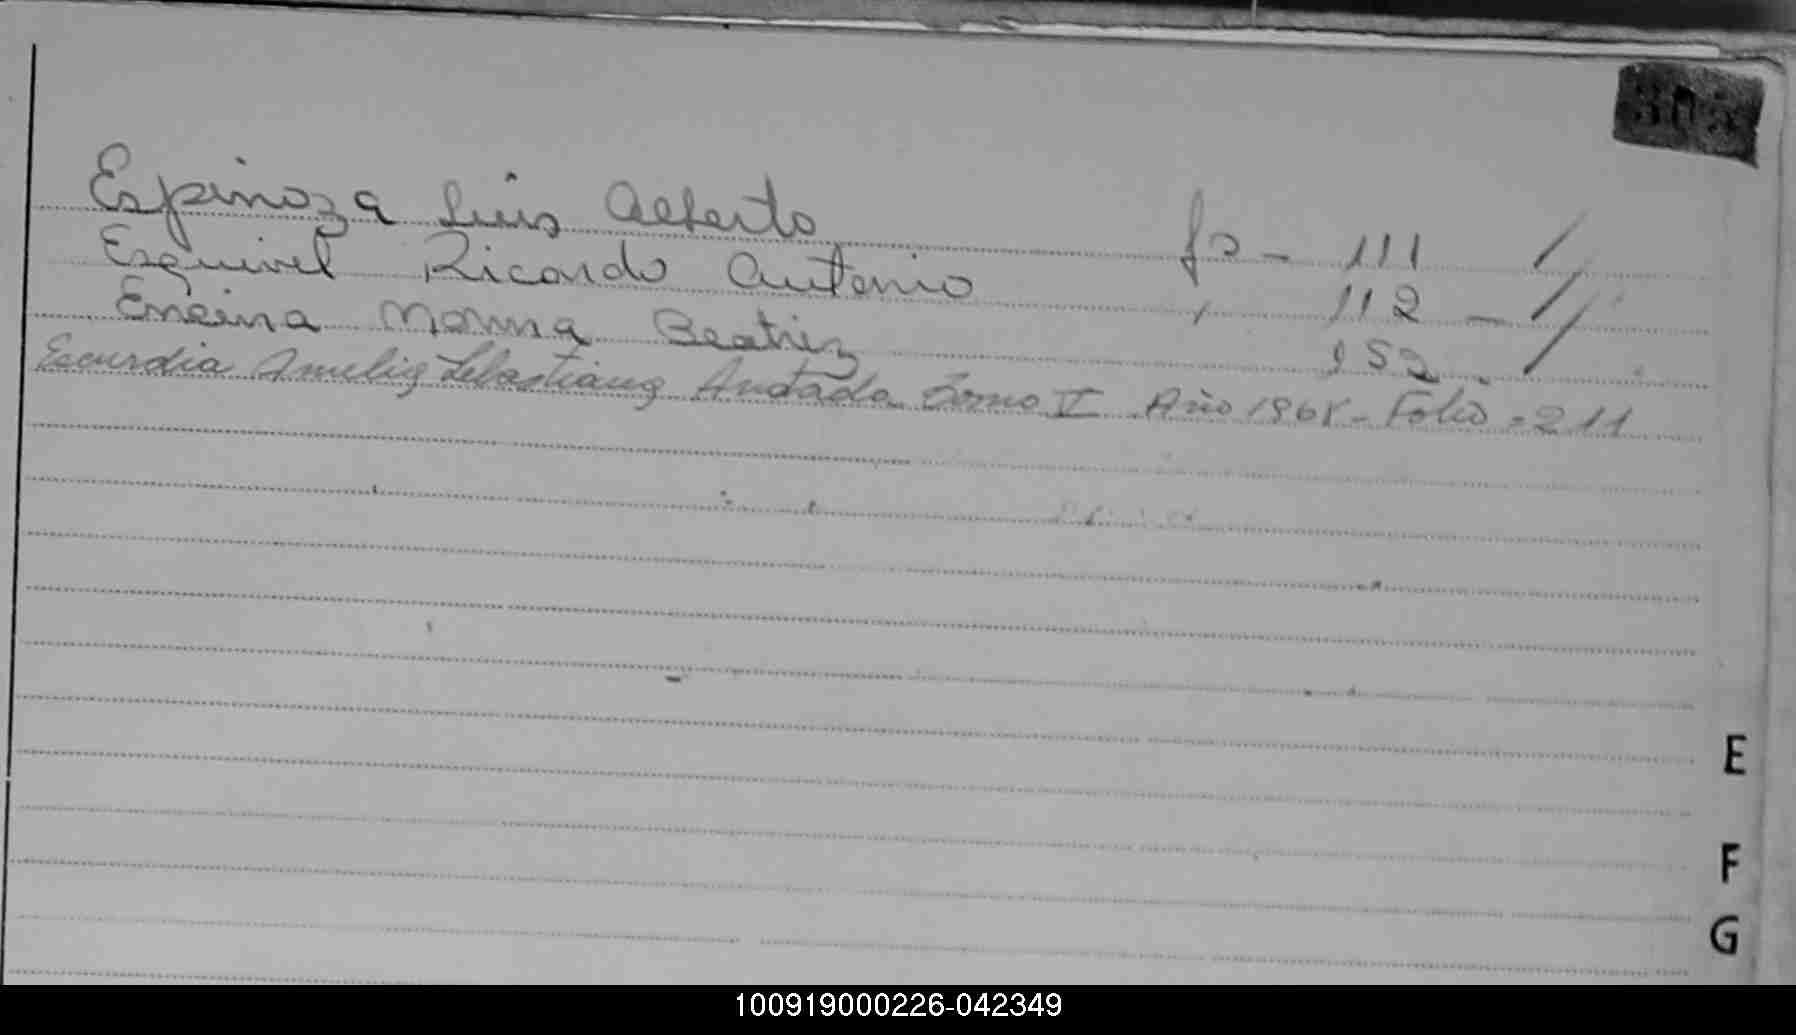 303
Espinoza Luis Alberto fs - 111 /
Esquivel Ricardo Antonio 112 - /
Encina Norma Beatriz 152 /
Escurdia Amelia Sebastiana Anotada Tomo V Año 1968 - Folio - 211
E
F
G
100919000226-042349